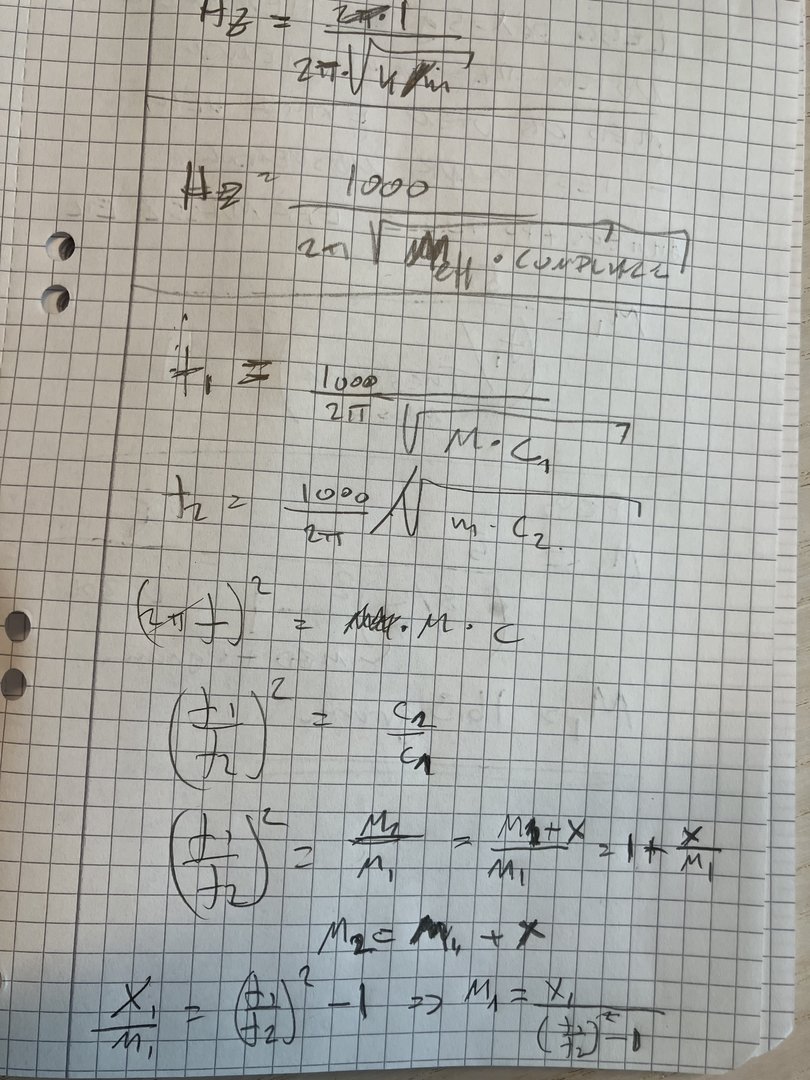 Hz = 1 / 2π·√
Hz = 1000 / 2π √ M eff · COMPLIANCE
f₁ = 1000 / 2π √ M · C₁
f₂ = 1000 / 2π / √ m · C₂
(2πf)² = · M · C
(f₁/f₂)² = C₂/C₁
(f₁/f₂)² = M₂/M₁ = M₁+X / M₁ = 1 + X/M₁
M₂ = M₁ + X
X₁/M₁ = (f₁/f₂)² - 1 ⇒ M₁ = X₁ / (f₁/f₂)² - 1